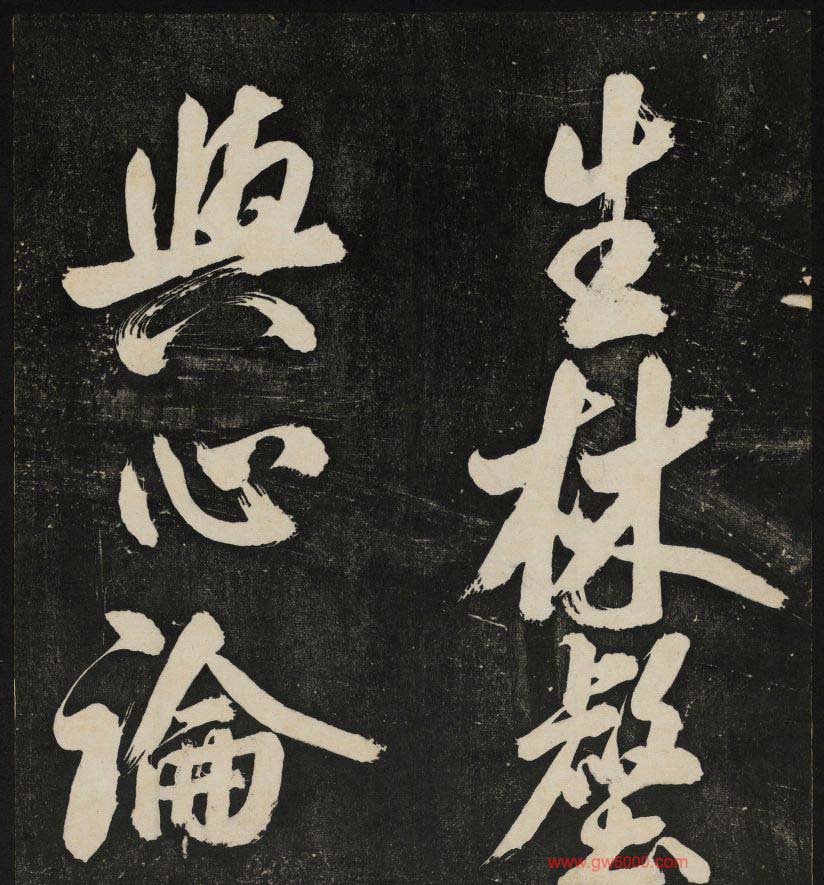 生林壑
與心論
www.gw5000.com